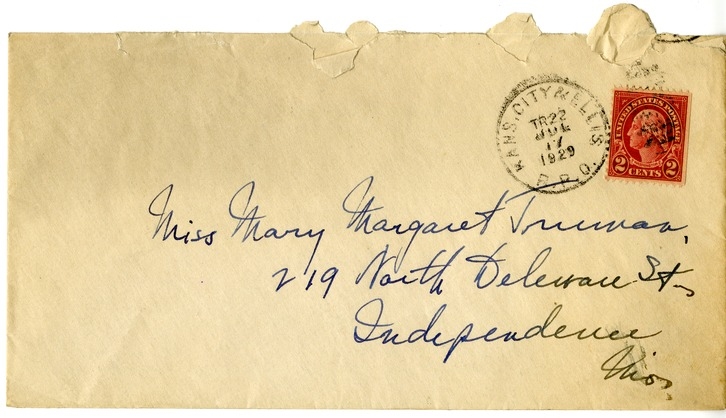 KANS. CITY & ELLIS
TR22
JUL
17
1929
R.P.O.
UNITED STATES POSTAGE
2 CENTS 2
Miss Mary Margaret Truman,
219 North Deleware St.,
Independence
Mo.